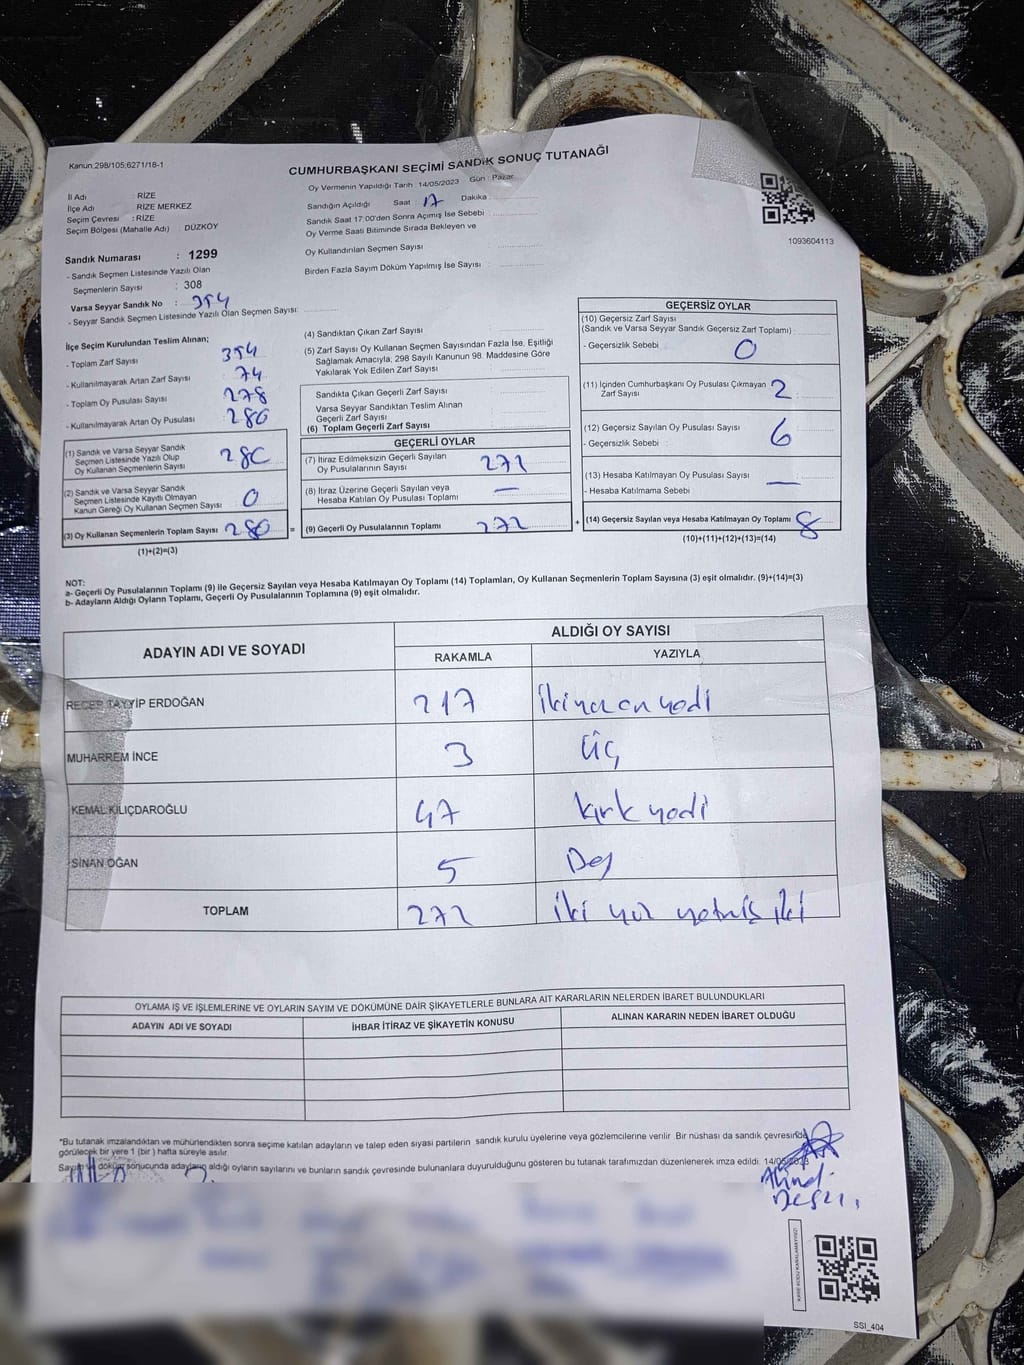 Kanun:298/105;6271/18-1
CUMHURBAŞKANI SEÇİMİ SANDIK SONUÇ TUTANAĞI
İl Adı : RİZE
İlçe Adı : RİZE MERKEZ
Seçim Çevresi : RİZE
Seçim Bölgesi (Mahalle Adı) DÜZKÖY
Sandık Numarası : 1299
- Sandık Seçmen Listesinde Yazılı Olan
Seçmenlerin Sayısı : 308
Varsa Seyyar Sandık No : 354
- Seyyar Sandık Seçmen Listesinde Yazılı Olan Seçmen Sayısı:
Oy Vermenin Yapıldığı Tarih : 14/05/2023 Gün : Pazar
Sandığın Açıldığı Saat : 17 Dakika :
Sandık Saat 17:00'den Sonra Açımış İse Sebebi :
Oy Verme Saati Bitiminde Sırada Bekleyen ve
Oy Kullandırılan Seçmen Sayısı :
Birden Fazla Sayım Döküm Yapılmış İse Sayısı :
1093604113
İlçe Seçim Kurulundan Teslim Alınan;
- Toplam Zarf Sayısı : 354
- Kullanılmayarak Artan Zarf Sayısı : 74
- Toplam Oy Pusulası Sayısı : 278
- Kullanılmayarak Artan Oy Pusulası : 280
(1) Sandık ve Varsa Seyyar Sandık
Seçmen Listesinde Yazılı Olup
Oy Kullanan Seçmenlerin Sayısı 280
(2) Sandık ve Varsa Seyyar Sandık
Seçmen Listesinde Kayıtlı Olmayan
Kanun Gereği Oy Kullanan Seçmen Sayısı 0
(3) Oy Kullanan Seçmenlerin Toplam Sayısı 280 =
(1)+(2)=(3)
(4) Sandıktan Çıkan Zarf Sayısı :
(5) Zarf Sayısı Oy Kullanan Seçmen Sayısından Fazla İse, Eşitliği
Sağlamak Amacıyla; 298 Sayılı Kanunun 98. Maddesine Göre
Yakılarak Yok Edilen Zarf Sayısı :
Sandıkta Çıkan Geçerli Zarf Sayısı :
Varsa Seyyar Sandıktan Teslim Alınan
Geçerli Zarf Sayısı :
(6) Toplam Geçerli Zarf Sayısı :
GEÇERLİ OYLAR
(7) İtiraz Edilmeksizin Geçerli Sayılan
Oy Pusulalarının Sayısı : 272
(8) İtiraz Üzerine Geçerli Sayılan veya
Hesaba Katılan Oy Pusulası Toplamı : —
(9) Geçerli Oy Pusulalarının Toplamı : 272 +
GEÇERSİZ OYLAR
(10) Geçersiz Zarf Sayısı
(Sandık ve Varsa Seyyar Sandık Geçersiz Zarf Toplamı) :
- Geçersizlik Sebebi : 0
(11) İçinden Cumhurbaşkanı Oy Pusulası Çıkmayan
Zarf Sayısı : 2
(12) Geçersiz Sayılan Oy Pusulası Sayısı :
- Geçersizlik Sebebi : 6
(13) Hesaba Katılmayan Oy Pusulası Sayısı : —
- Hesaba Katılmama Sebebi :
(14) Geçersiz Sayılan veya Hesaba Katılmayan Oy Toplamı : 8
(10)+(11)+(12)+(13)=(14)
NOT:
a- Geçerli Oy Pusulalarının Toplamı (9) ile Geçersiz Sayılan veya Hesaba Katılmayan Oy Toplamı (14) Toplamları, Oy Kullanan Seçmenlerin Toplam Sayısına (3) eşit olmalıdır. (9)+(14)=(3)
b- Adayların Aldığı Oyların Toplamı, Geçerli Oy Pusulalarının Toplamına (9) eşit olmalıdır.
ADAYIN ADI VE SOYADI ALDIĞI OY SAYISI
RAKAMLA YAZIYLA
RECEP TAYYİP ERDOĞAN 217 iki yüz on yedi
MUHARREM İNCE 3 üç
KEMAL KILIÇDAROĞLU 47 kırk yedi
SİNAN OĞAN 5 Beş
TOPLAM 272 iki yüz yetmiş iki
OYLAMA İŞ VE İŞLEMLERİNE VE OYLARIN SAYIM VE DÖKÜMÜNE DAİR ŞİKAYETLERLE BUNLARA AİT KARARLARIN NELERDEN İBARET BULUNDUKLARI
ADAYIN ADI VE SOYADI İHBAR İTİRAZ VE ŞİKAYETİN KONUSU ALINAN KARARIN NEDEN İBARET OLDUĞU
*Bu tutanak imzalandıktan ve mühürlendikten sonra seçime katılan adayların ve talep eden siyasi partilerin sandık kurulu üyelerine veya gözlemcilerine verilir. Bir nüshası da sandık çevresinde
görülecek bir yere 1 (bir ) hafta süreyle asılır.
Sayım ve döküm sonucunda adayların aldığı oyların sayılarını ve bunların sandık çevresinde bulunanlara duyurulduğunu gösteren bu tutanak tarafımızdan düzenlenerek imza edildi. 14/05/2023
KARE KODU KARALAMAYINIZ!
SSI_404